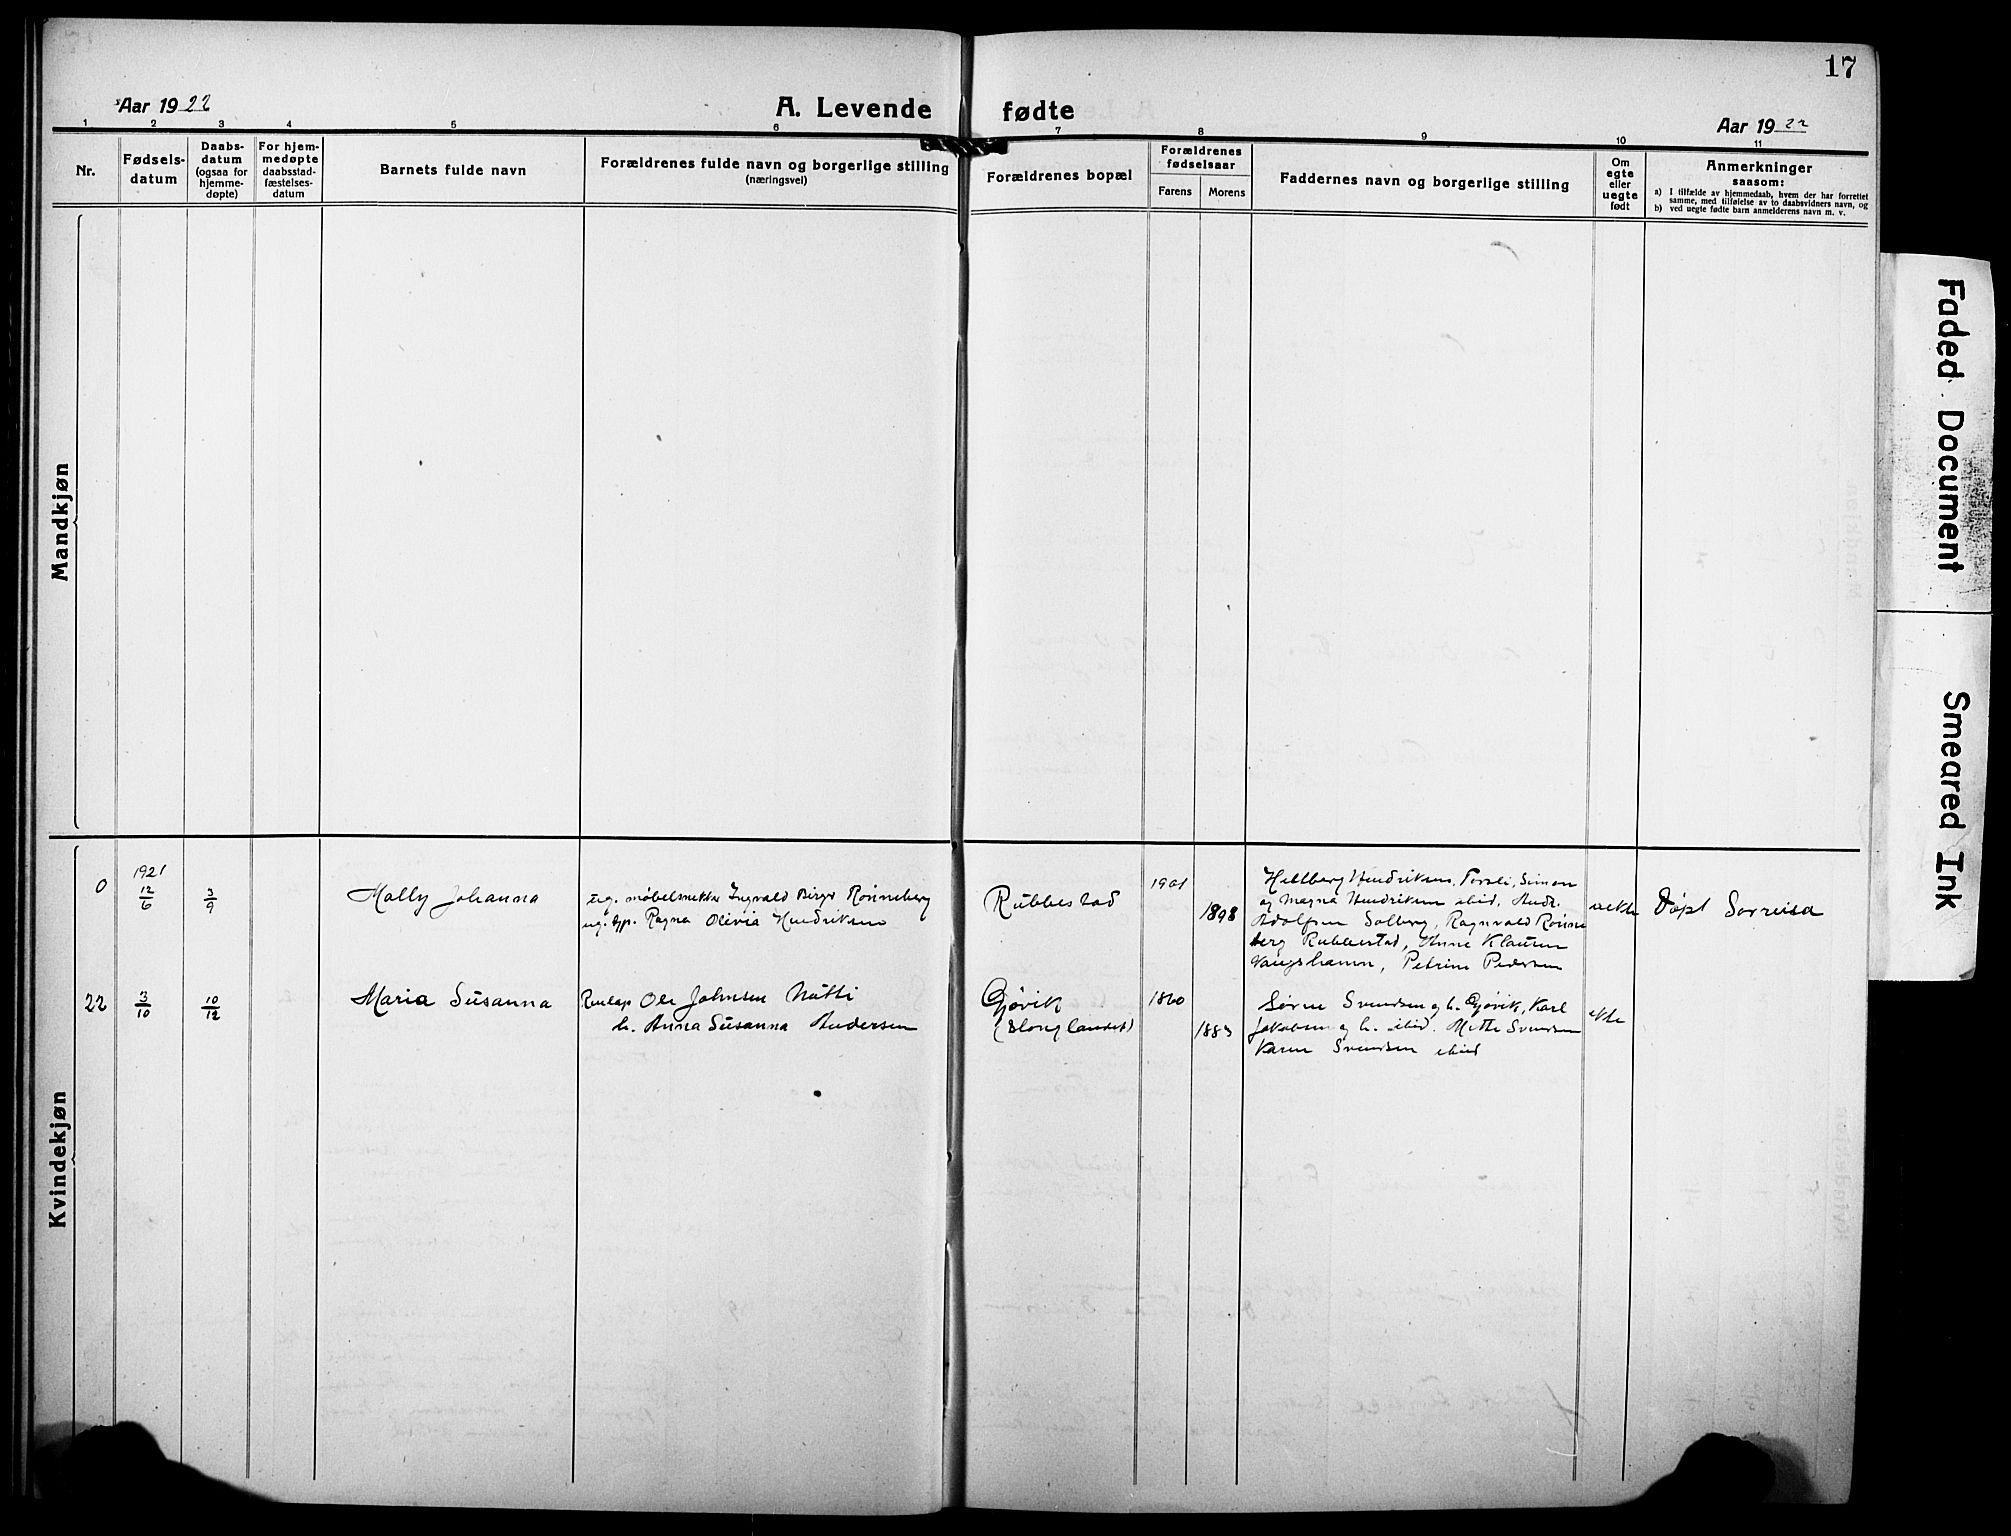 17
Aar 1922
A. Levende fødte
Aar 1922
1 2 3 4 5 6 7 8 9 10 11
Nr.
Fødsels-
datum
Daabs-
datum
(ogsaa for
hjemme-
døpte)
For hjem-
medøpte
daabsstad-
fæstelses-
datum
Barnets fulde navn
Forældrenes fulde navn og borgerlige stilling
(næringsvei)
Forældrenes bopæl
Forældrenes
fødselsaar
Farens Morens
Faddernes navn og borgerlige stilling
Om
egte
eller
uegte
født
Anmerkninger
saasom:
a) I tilfælde av hjemmedaab, hvem der har forrettet
samme, med tilføielse av to daabsvidners navn, og
b) ved uegte fødte barn anmelderens navn m. v.
Mandkjøn
Kvindekjøn
0
1921
12/6
3/9
Molly Johanna
ug. møbelsnekker Ingvald Birger Rønneberg
ug. Ragna Olivia Hendriksen
Rubbestad
1901
1898
Hellberg Hendriksen, Forsli, Simon
og Magna Hendriksen ibid, Andr.
Adolfsen Solberg, Ragnvald Rønne
berg Rubbestad, Anne Klausen
Vangshamn, Petrine Pedersen
uekte
Døpt Sørreisa
22
3/10
10/12
Maria Susanna
Ole Johnsen Nutti
h. Anna Susanna Andersen
Gjøvik
(Stonglandet)
1860
1883
Søren Svendsen og h. Gjøvik, Karl
Jakobsen og h. ibid. Mette Svendsen
Karen Svendsen ibid
ekte
Faded Document
Smeared Ink